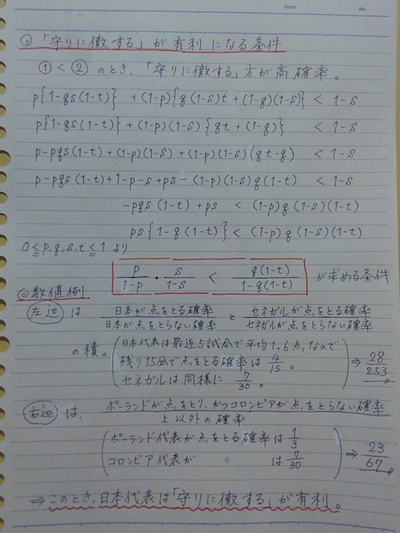 Date No.
◎「守りに徹する」が有利になる条件
①<②のとき、「守りに徹する」方が高確率。
p{1-qs(1-t)} +(1-p){q(1-s)t+(1-q)(1-s)} < 1-s
p{1-qs(1-t)} +(1-p)(1-s){qt+(1-q)} < 1-s
p-pqs(1-t)+(1-p)(1-s)+(1-p)(1-s)(qt-q) < 1-s
p-pqs(1-t)+1-p-s+ps-(1-p)(1-s)q(1-t) < 1-s
-pqs(1-t)+ps < (1-p)q(1-s)(1-t)
ps{1-q(1-t)} < (1-p)q(1-s)(1-t)
0≦p,q,s,t≦1 より
p/(1-p)・s/(1-s) < q(1-t)/(1-q(1-t)) が求める条件
◎数値例
左辺は、日本が点をとる確率/日本が点をとらない確率 と セネガルが点をとる確率/セネガルが点をとらない確率
の積。(日本代表は最近5試合で平均1.6点、なので
残り15分で点をとる確率は4/15。
セネガルは同様に7/30。) ⇒ 28/253
右辺は、ポーランドが点をとり、かつコロンビアが点をとらない確率/上以外の確率
(ポーランド代表が点をとる確率は1/3
コロンビア代表が 〃 は7/30) ⇒ 23/67
⇒このとき、日本代表は「守りに徹する」が有利。